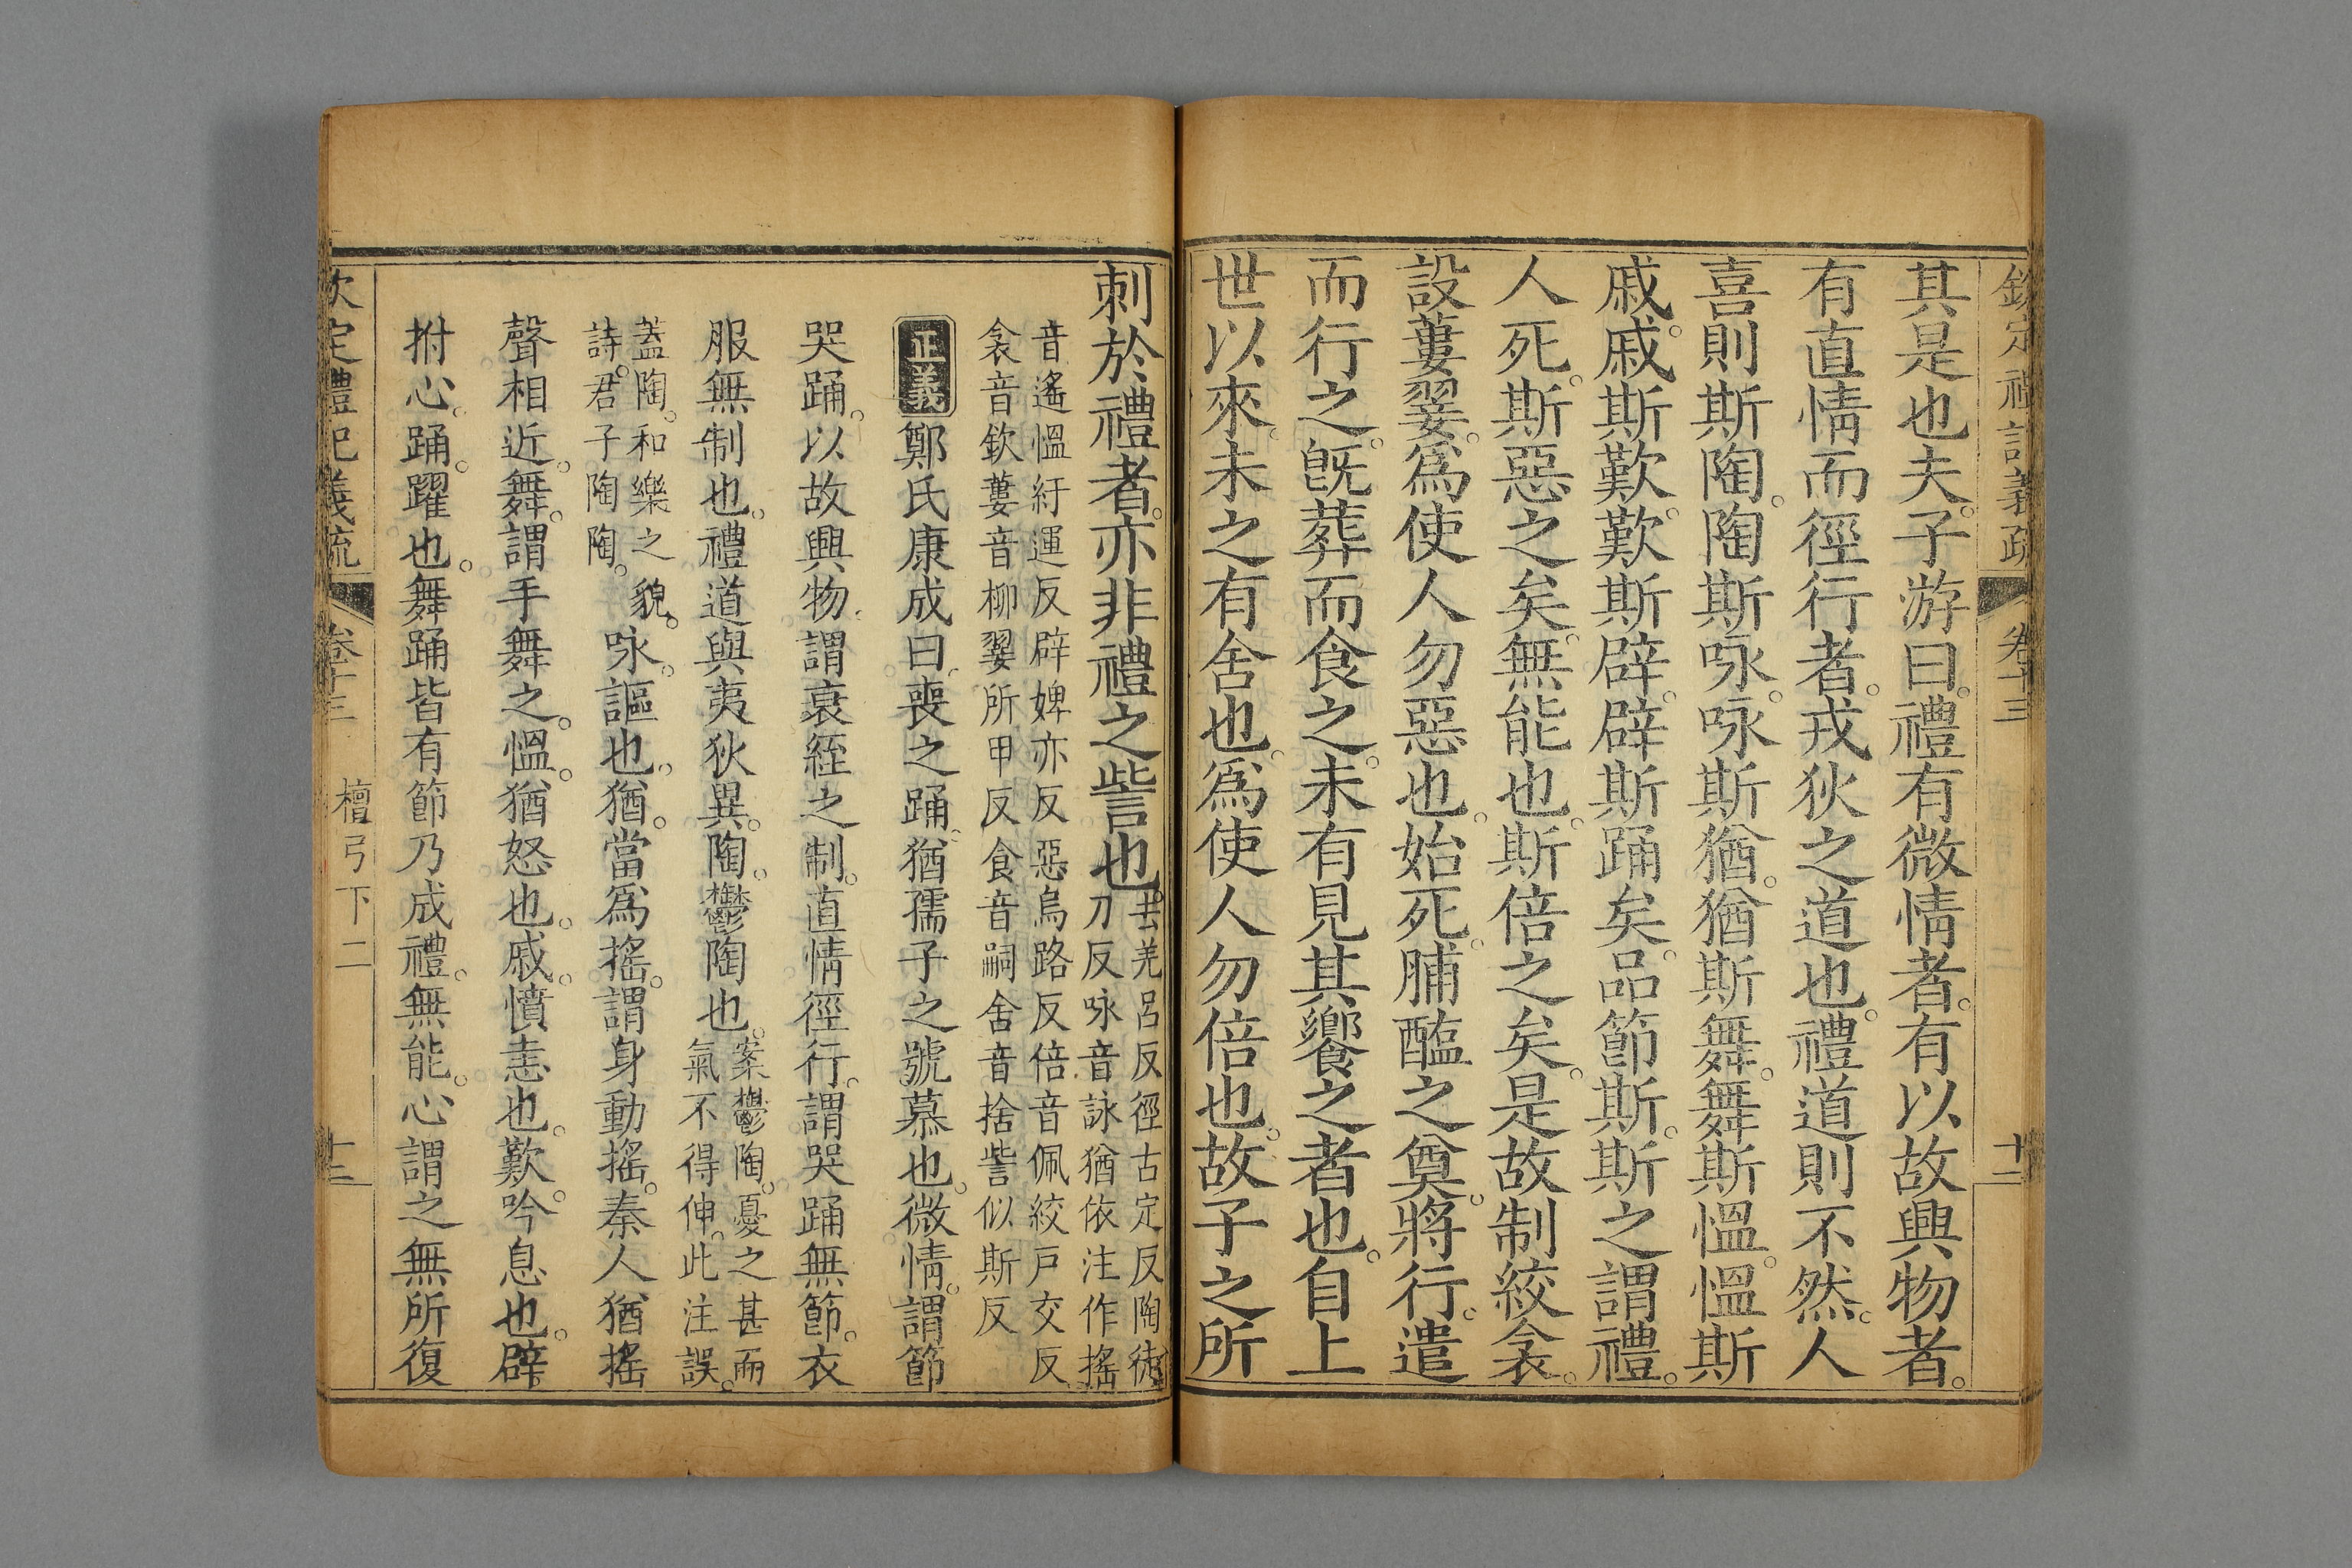 欽定禮記義疏 卷十三 十二
其是也夫。子游曰。禮有微情者。有以故興物者。
有直情而徑行者。戎狄之道也。禮道則不然。人
喜則斯陶。陶斯咏。咏斯猶。猶斯舞。舞斯慍。慍斯
戚。戚斯歎。歎斯辟。辟斯踊矣。品節斯。斯之謂禮。
人死。斯惡之矣。無能也。斯倍之矣。是故制絞衾。
設蔞翣。為使人勿惡也。始死。脯醢之奠。將行。遣
而行之。旣葬而食之。未有見其饗之者也。自上
世以來。未之有舍也。為使人勿倍也。故子之所
刺於禮者。亦非禮之訾也。
去羌呂反徑古定反陶徒
刀反咏音詠猶依注作搖
音遙慍紆運反辟婢亦反惡烏路反倍音佩絞戶交反
衾音欽蔞音柳翣所甲反食音嗣舍音捨訾似斯反
正義鄭氏康成曰。喪之踊。猶孺子之號慕也。微情。謂節
哭踊。以故興物。謂衰絰之制。直情徑行。謂哭踊無節。衣
服無制也。禮道與夷狄異。陶。鬱陶也。
案鬱陶。憂之甚而
氣不得伸。此注誤。
蓋陶。和樂之貌。
詩。君子陶陶。
咏。謳也。猶。當為搖。謂身動搖。秦人猶搖
聲相近。舞。謂手舞之。慍。猶怒也。戚。憤恚也。歎。吟息也。辟。
拊心。踊。躍也。舞踊皆有節乃成禮。無能。心謂之無所復
欽定禮記義疏 卷十三 檀弓下二 十二